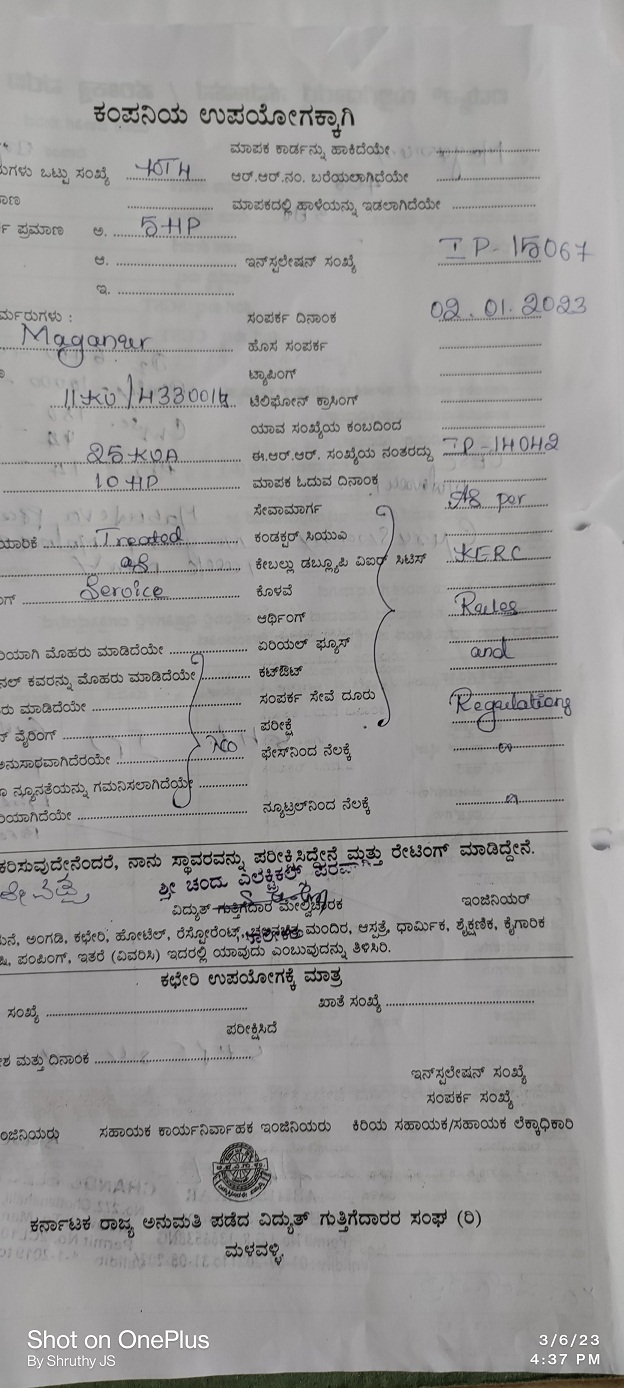 ಕಂಪನಿಯ ಉಪಯೋಗಕ್ಕಾಗಿ
ಮಾಪಕ ಕಾರ್ಡನ್ನು ಹಾಕಿದೆಯೇ
ಗಳು ಒಟ್ಟು ಸಂಖ್ಯೆ
ಆರ್.ಆರ್.ನಂ. ಬರೆಯಲಾಗಿದೆಯೇ
ಮಾಪಕದಲ್ಲಿ ಹಾಳೆಯನ್ನು ಇಡಲಾಗಿದೆಯೇ
ಪ್ರಮಾಣ ಅ. 5-HP
ಆ. ಇನ್‌ಸ್ಟಲೇಷನ್ ಸಂಖ್ಯೆ IP-15067
ಇ.
ರ್ಮರುಗಳು : ಸಂಪರ್ಕ ದಿನಾಂಕ 02.01.2023
Maganur ಹೊಸ ಸಂಪರ್ಕ
ಟ್ಯಾಪಿಂಗ್
11KV/433 ಟೆಲಿಫೋನ್ ಕ್ರಾಸಿಂಗ್
ಯಾವ ಸಂಖ್ಯೆಯ ಕಂಬದಿಂದ
25-KVA ಈ.ಆರ್.ಆರ್. ಸಂಖ್ಯೆಯ ನಂತರದ್ದು IP-14042
10 HP ಮಾಪಕ ಓದುವ ದಿನಾಂಕ
ಸೇವಾಮಾರ್ಗ As per
ಯಾರಿಕೆ Treated ಕಂಡಕ್ಟರ್ ಸಿಯುಎ
as ಕೇಬಲ್ಲು ಡಬ್ಲ್ಯೂಪಿ ವಿಐರ್ ಸಿಟಿಸ್ KERC
Service ಕೊಳವೆ
ಆರ್ಥಿಂಗ್ Rules
ಯಾಗಿ ಮೊಹರು ಮಾಡಿದೆಯೇ ಏರಿಯಲ್ ಫ್ಯೂಸ್
and
ನಲ್ ಕವರನ್ನು ಮೊಹರು ಮಾಡಿದೆಯೇ ಕಟ್‌ಔಟ್
ರು ಮಾಡಿದೆಯೇ ಸಂಪರ್ಕ ಸೇವೆ ದೂರು Regulations
ವೈರಿಂಗ್ ಪರೀಕ್ಷೆ
ಅನುಸಾರವಾಗಿದೆರಯೇ NO ಫೇಸ್‌ನಿಂದ ನೆಲಕ್ಕೆ
ನ್ಯೂನತೆಯನ್ನು ಗಮನಿಸಲಾಗಿದೆಯೇ
ಯಾಗಿದೆಯೇ ನ್ಯೂಟ್ರಲ್‌ನಿಂದ ನೆಲಕ್ಕೆ
ಕರಿಸುವುದೇನೆಂದರೆ, ನಾನು ಸ್ಥಾವರವನ್ನು ಪರೀಕ್ಷಿಸಿದ್ದೇನೆ ಮತ್ತು ರೇಟಿಂಗ್ ಮಾಡಿದ್ದೇನೆ.
ಶ್ರೀ ಚಂದು ಎಲೆಕ್ಟ್ರಿಕಲ್ಸ್ ಪರವಾಗಿ
ವಿದ್ಯುತ್ ಗುತ್ತಿಗೆದಾರ ಮೇಲ್ವಿಚಾರಕ ಇಂಜಿನಿಯರ್
ಮನೆ, ಅಂಗಡಿ, ಕಛೇರಿ, ಹೋಟೆಲ್, ರೆಸ್ಟೋರೆಂಟ್, ಮಂದಿರ, ಆಸ್ಪತ್ರೆ, ಧಾರ್ಮಿಕ, ಶೈಕ್ಷಣಿಕ, ಕೈಗಾರಿಕ
ಪಂಪಿಂಗ್, ಇತರೆ (ವಿವರಿಸಿ) ಇದರಲ್ಲಿ ಯಾವುದು ಎಂಬುವುದನ್ನು ತಿಳಿಸಿರಿ.
ಕಛೇರಿ ಉಪಯೋಗಕ್ಕೆ ಮಾತ್ರ
ಸಂಖ್ಯೆ ಖಾತೆ ಸಂಖ್ಯೆ
ಪರೀಕ್ಷಿಸಿದೆ
ಶ ಮತ್ತು ದಿನಾಂಕ
ಇನ್‌ಸ್ಟಲೇಷನ್ ಸಂಖ್ಯೆ
ಸಂಪರ್ಕ ಸಂಖ್ಯೆ
ಂಜಿನಿಯರು ಸಹಾಯಕ ಕಾರ್ಯನಿರ್ವಾಹಕ ಇಂಜಿನಿಯರು ಕಿರಿಯ ಸಹಾಯಕ/ಸಹಾಯಕ ಲೆಕ್ಕಾಧಿಕಾರಿ
ಕರ್ನಾಟಕ ರಾಜ್ಯ ಅನುಮತಿ ಪಡೆದ ವಿದ್ಯುತ್ ಗುತ್ತಿಗೆದಾರರ ಸಂಘ (ರಿ)
ಮಳವಳ್ಳಿ
Shot on OnePlus
By Shruthy JS
3/6/23
4:37 PM